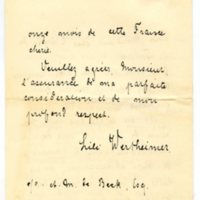 onze mois de cette France
chérie.
Veuillez agréer, Monsieur
l'assurance de ma parfaite
considération et de mon
profond respect.
Lili Wertheimer
c/o. de Beek, Esq.